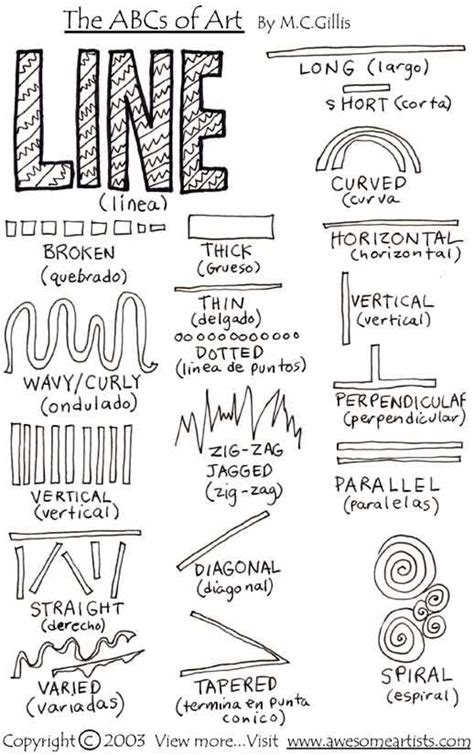 The ABCs of Art By M.C.Gillis
LINE
(linea)
LONG (largo)
SHORT (corta)
CURVED
(curva
BROKEN
(quebrado)
THICK
(Grueso)
HORIZONTAL
(horizontal)
THIN
(delgado)
DOTTED
(linea de puntos)
VERTICAL
(vertical)
WAVY/CURLY
(ondulado)
PERPENDICULAR
(perpendicular)
ZIG-ZAG
JAGGED
(zig-zag)
VERTICAL
(vertical)
PARALLEL
(paralelas)
STRAIGHT
(derecho)
DIAGONAL
(diagonal)
VARIED
(variadas)
TAPERED
(termina en punta
conico)
SPIRAL
(espiral)
Copyright © 2003 View more...Visit www.awesomeartists.com